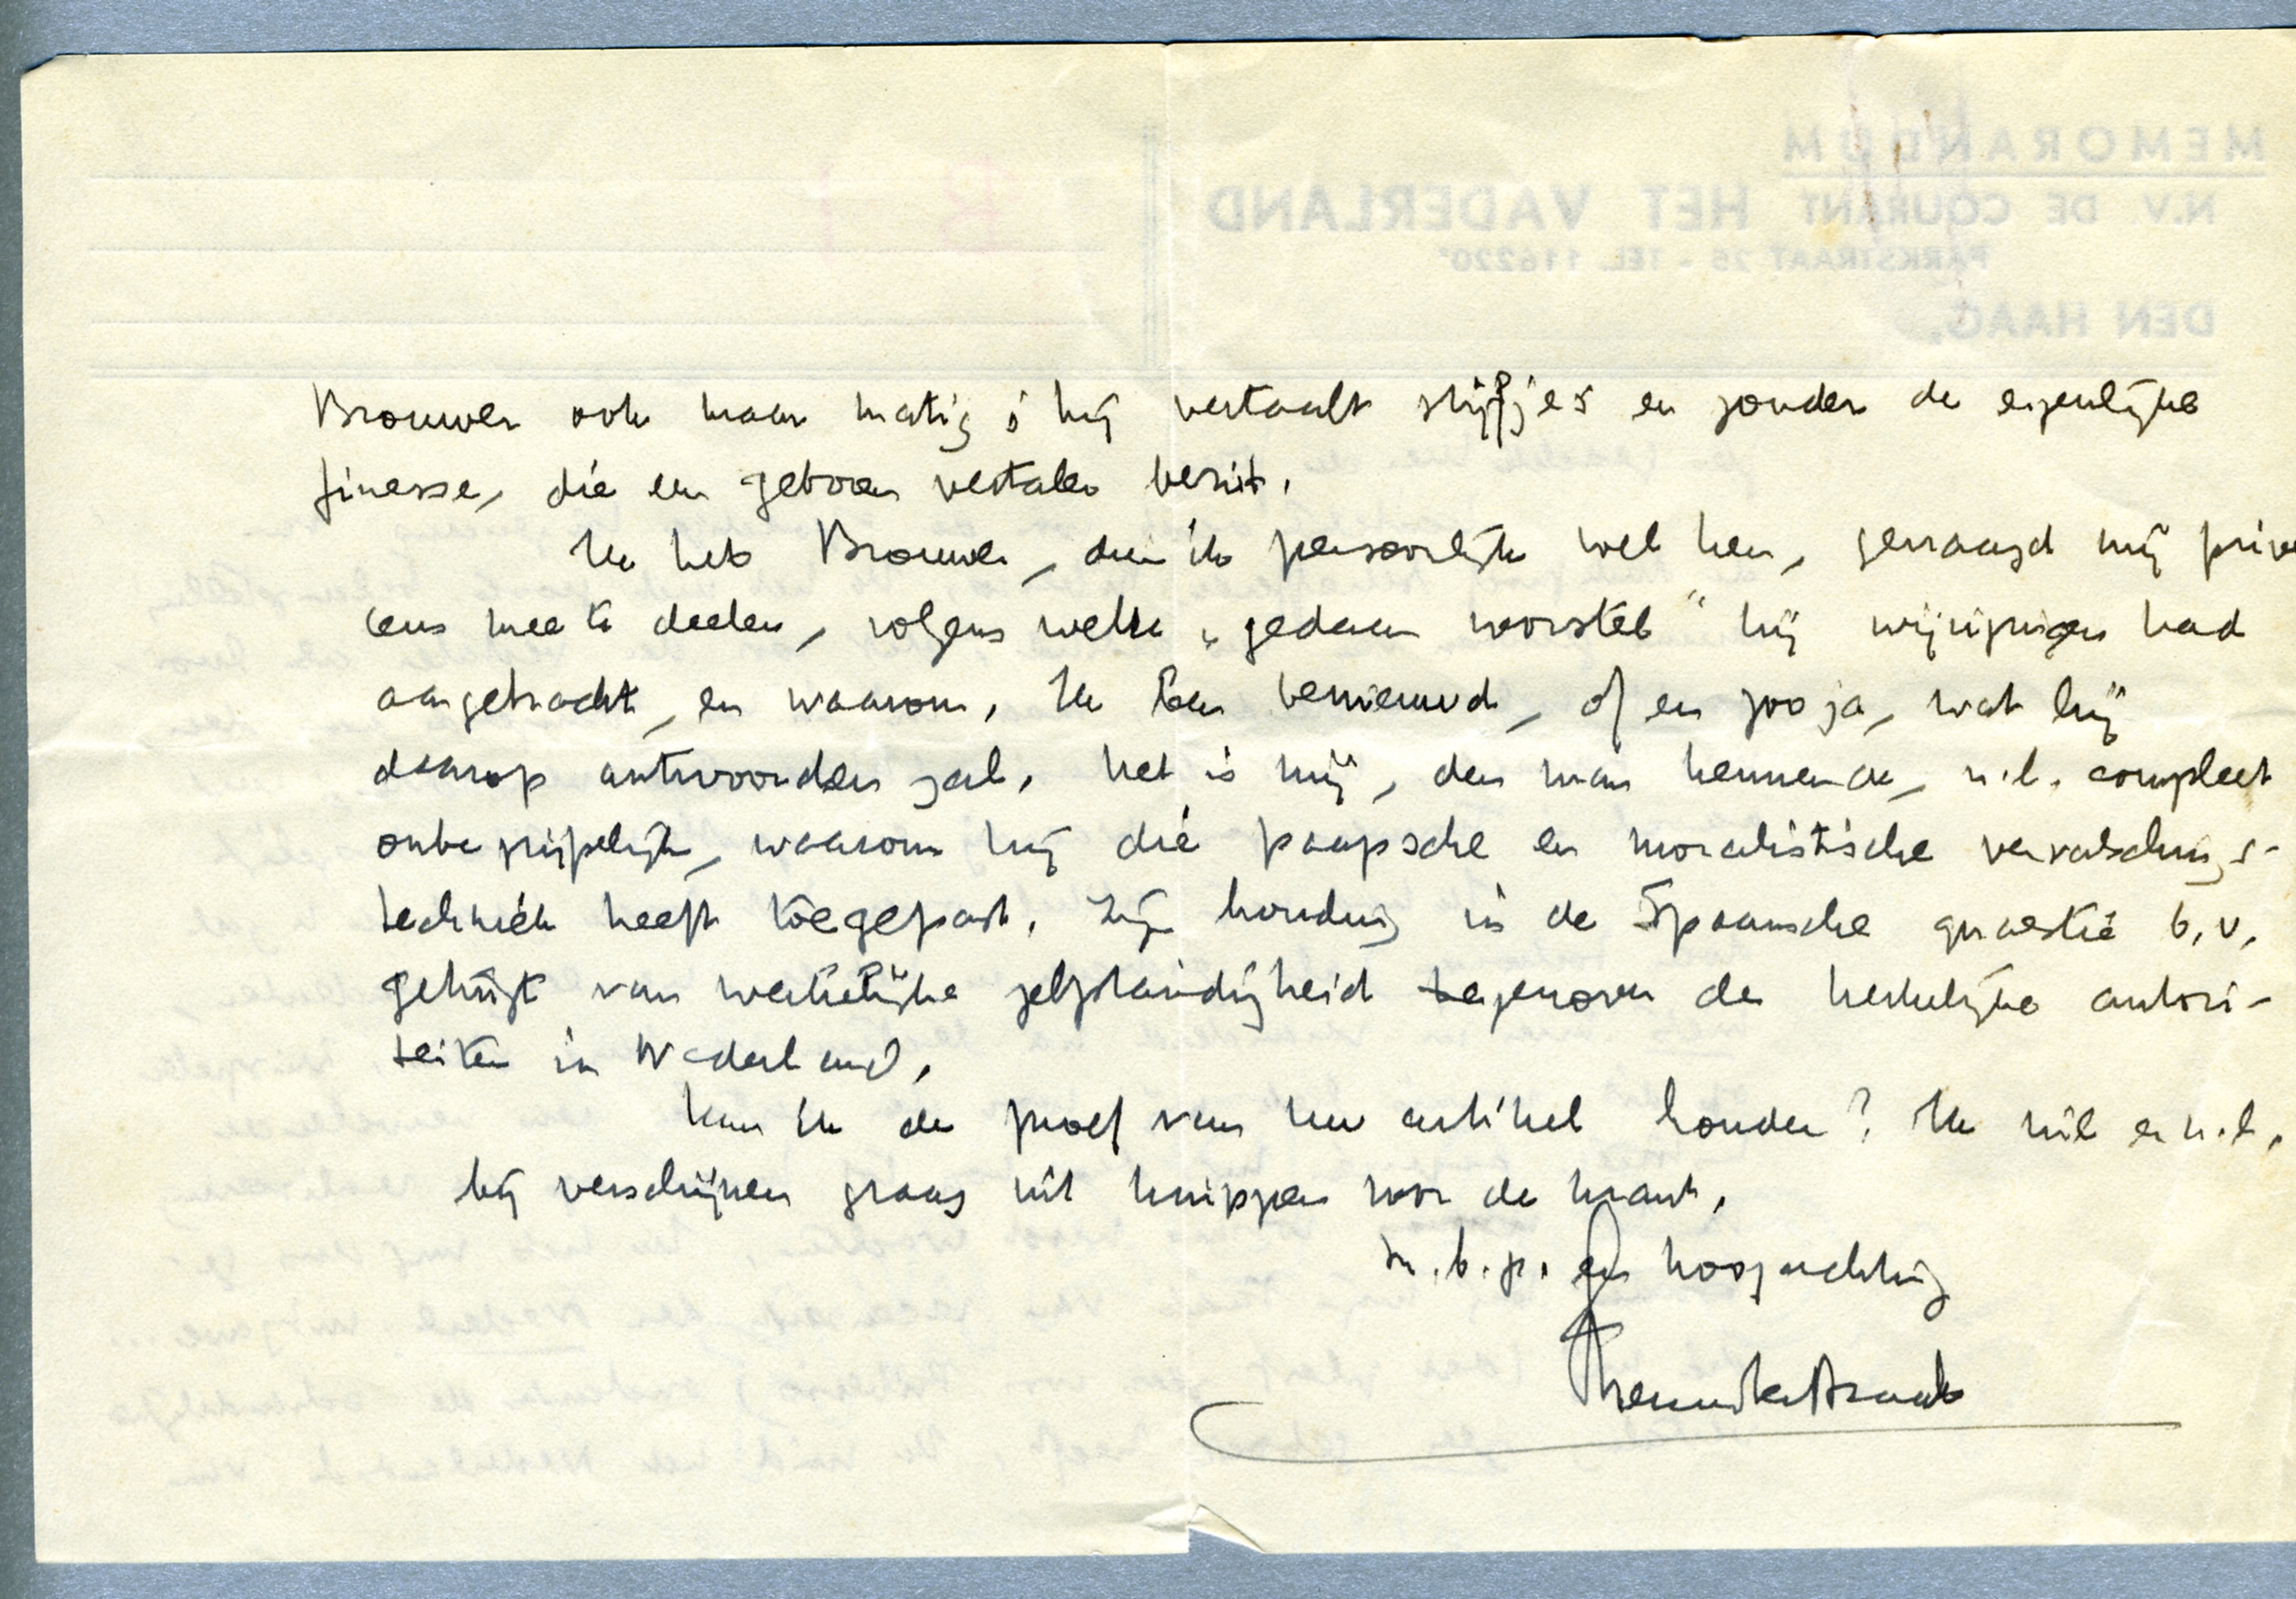 MEMORANDUM
N.V. DE COURANT HET VADERLAND
PARKSTRAAT 25 - TEL. 116220*
DEN HAAG,
Brouwer ook maar matig; hij vertaalt stijfjes en zonder de eigenlijke
finesse, die een geboren vertaler bezit.
Ik heb Brouwer, dien ik persoonlijk wel ken, gevraagd mij privé
eens mee te deelen, volgens welke „gedaan voorstel" hij wijzigingen had
aangebracht, en waarom. Ik ben benieuwd, of en zoo ja, wat hij
daarop antwoorden zal. Het is mij, den man kennende, n.l. compleet
onbegrijpelijk, waarom hij die paapsche en moralistische vervalschings-
techniek heeft toegepast. Zijn houding in de Spaansche quaestie b.v.
getuigt van werkelijke zelfstandigheid tegenover de kerkelijke autori-
teiten in Nederland.
Kan ik de proef van uw artikel houden? Ik wil er n.l.
bij verschijnen graag uit knippen voor de krant.
m.b.g. en hoogachting
Menno ter Braak